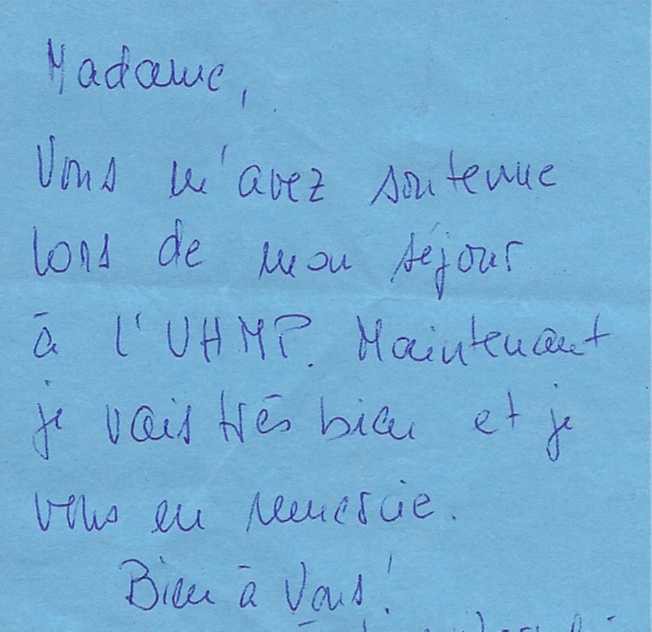 Madame,
Vous m'avez soutenue
lors de mon séjour
à l'UHMP. Maintenant
je vais très bien et je
vous en remercie.
Bien à Vous!